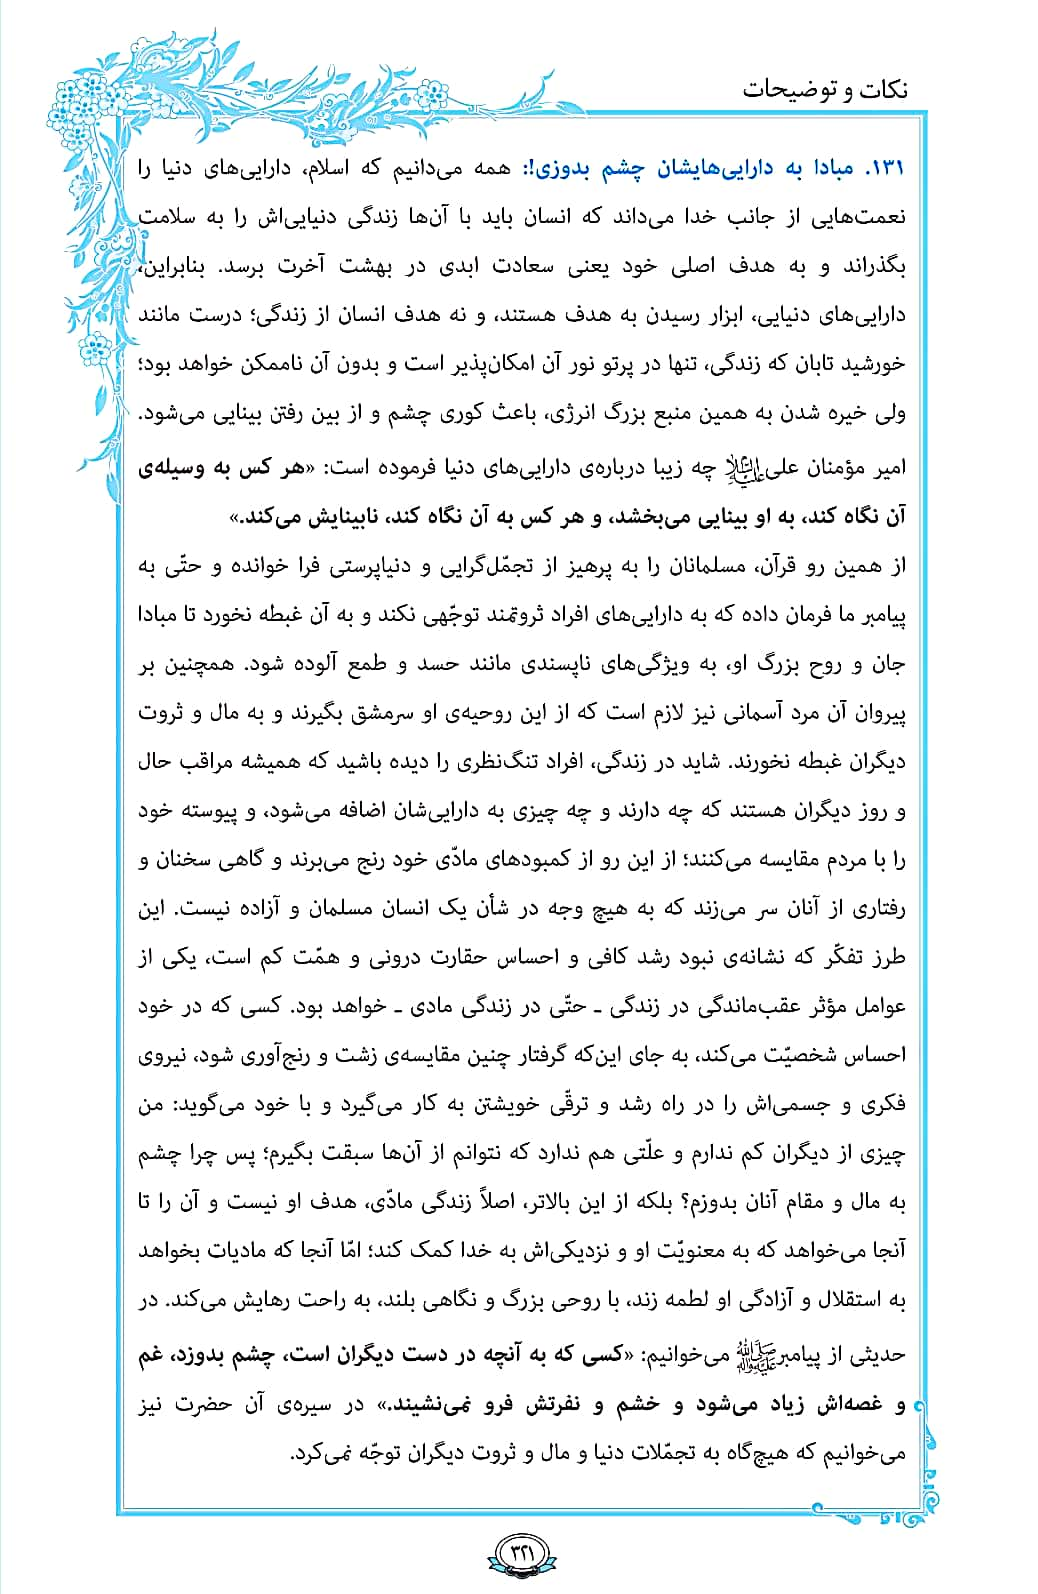 نکات و توضیحات
۱۳۱. مبادا به دارایی‌هایشان چشم بدوزی!: همه می‌دانیم که اسلام، دارایی‌های دنیا را
نعمت‌هایی از جانب خدا می‌داند که انسان باید با آن‌ها زندگی دنیایی‌اش را به سلامت
بگذراند و به هدف اصلی خود یعنی سعادت ابدی در بهشت آخرت برسد. بنابراین،
دارایی‌های دنیایی، ابزار رسیدن به هدف هستند، و نه هدف انسان از زندگی؛ درست مانند
خورشید تابان که زندگی، تنها در پرتو نور آن امکان‌پذیر است و بدون آن ناممکن خواهد بود؛
ولی خیره شدن به همین منبع بزرگ انرژی، باعث کوری چشم و از بین رفتن بینایی می‌شود.
امیر مؤمنان علی علیه‌السلام چه زیبا درباره‌ی دارایی‌های دنیا فرموده است: «هر کس به وسیله‌ی
آن نگاه کند، به او بینایی می‌بخشد، و هر کس به آن نگاه کند، نابینایش می‌کند.»
از همین رو قرآن، مسلمانان را به پرهیز از تجمّل‌گرایی و دنیاپرستی فرا خوانده و حتّی به
پیامبر ما فرمان داده که به دارایی‌های افراد ثروتمند توجّهی نکند و به آن غبطه نخورد تا مبادا
جان و روح بزرگ او، به ویژگی‌های ناپسندی مانند حسد و طمع آلوده شود. همچنین بر
پیروان آن مرد آسمانی نیز لازم است که از این روحیه‌ی او سرمشق بگیرند و به مال و ثروت
دیگران غبطه نخورند. شاید در زندگی، افراد تنگ‌نظری را دیده باشید که همیشه مراقب حال
و روز دیگران هستند که چه دارند و چه چیزی به دارایی‌شان اضافه می‌شود، و پیوسته خود
را با مردم مقایسه می‌کنند؛ از این رو از کمبودهای مادّی خود رنج می‌برند و گاهی سخنان و
رفتاری از آنان سر می‌زند که به هیچ وجه در شأن یک انسان مسلمان و آزاده نیست. این
طرز تفکّر که نشانه‌ی نبود رشد کافی و احساس حقارت درونی و همّت کم است، یکی از
عوامل مؤثر عقب‌ماندگی در زندگی ـ حتّی در زندگی مادی ـ خواهد بود. کسی که در خود
احساس شخصیّت می‌کند، به جای این‌که گرفتار چنین مقایسه‌ی زشت و رنج‌آوری شود، نیروی
فکری و جسمی‌اش را در راه رشد و ترقّی خویشتن به کار می‌گیرد و با خود می‌گوید: من
چیزی از دیگران کم ندارم و علّتی هم ندارد که نتوانم از آن‌ها سبقت بگیرم؛ پس چرا چشم
به مال و مقام آنان بدوزم؟ بلکه از این بالاتر، اصلاً زندگی مادّی، هدف او نیست و آن را تا
آنجا می‌خواهد که به معنویّت او و نزدیکی‌اش به خدا کمک کند؛ امّا آنجا که مادیات بخواهد
به استقلال و آزادگی او لطمه زند، با روحی بزرگ و نگاهی بلند، به راحت رهایش می‌کند. در
حدیثی از پیامبر صلی‌الله‌علیه‌وآله می‌خوانیم: «کسی که به آنچه در دست دیگران است، چشم بدوزد، غم
و غصه‌اش زیاد می‌شود و خشم و نفرتش فرو نمی‌نشیند.» در سیره‌ی آن حضرت نیز
می‌خوانیم که هیچ‌گاه به تجمّلات دنیا و مال و ثروت دیگران توجّه نمی‌کرد.
۳۲۱